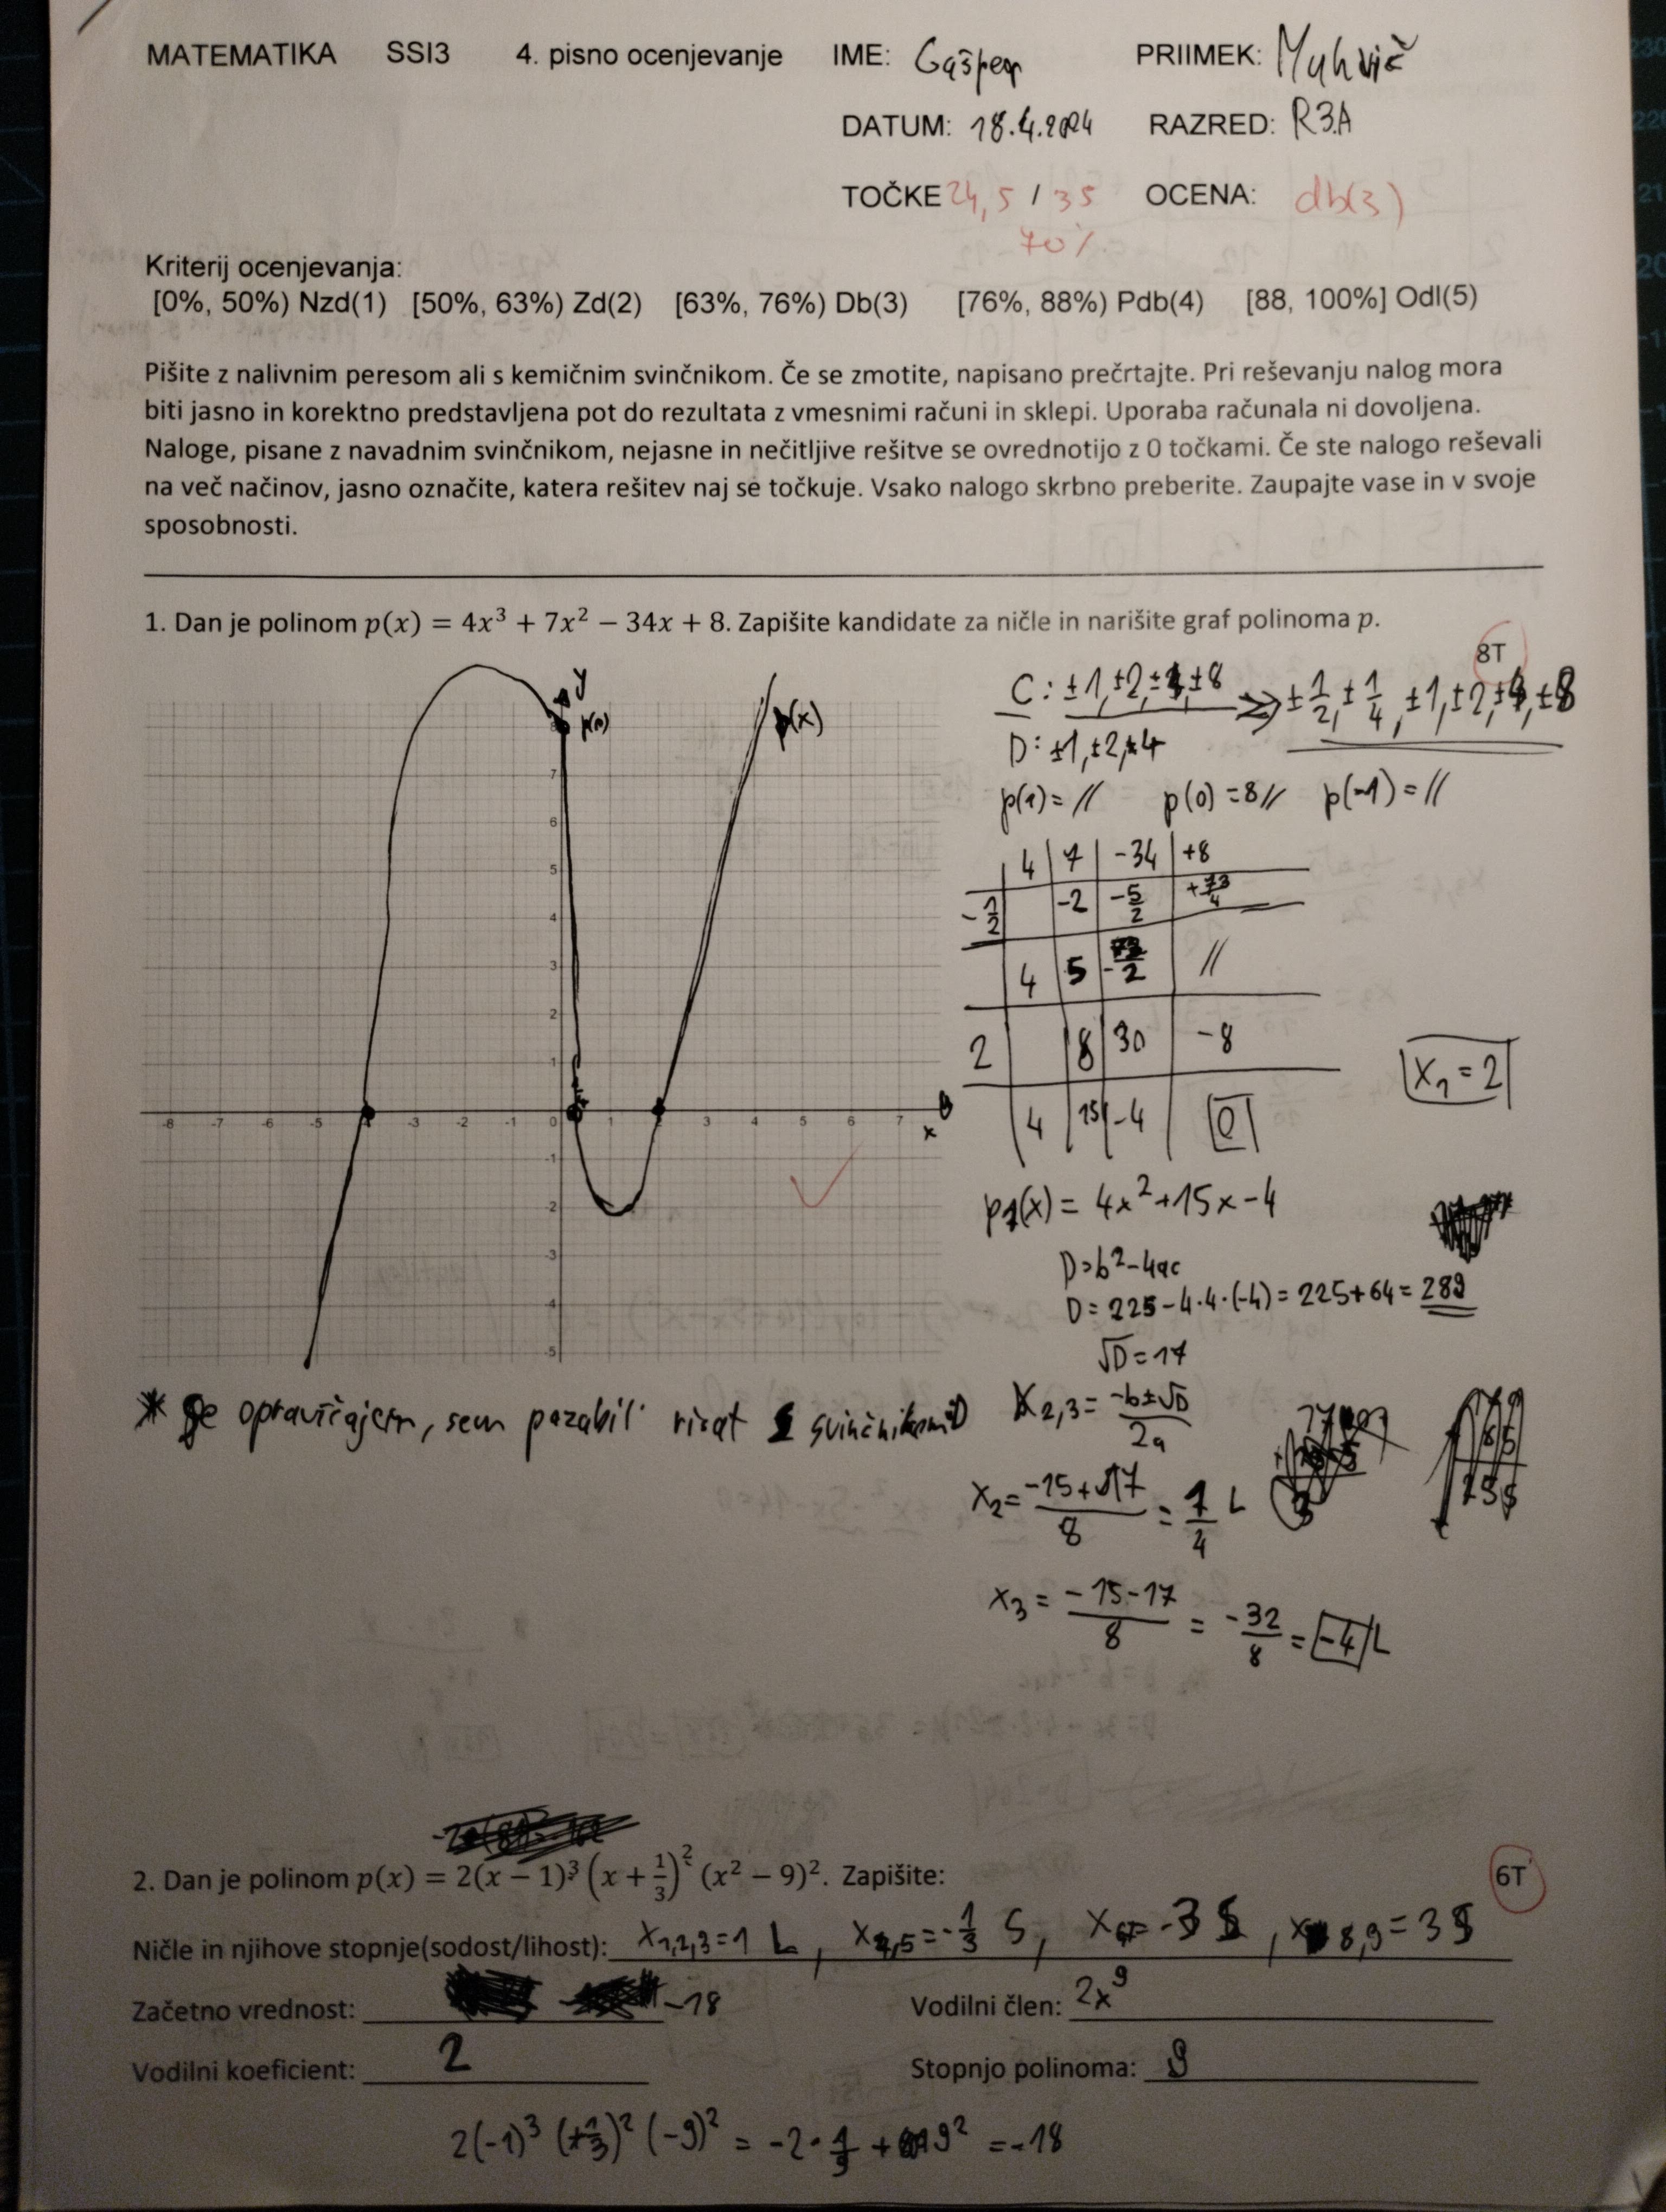 MATEMATIKA SSI3 4. pisno ocenjevanje IME: Gašper PRIIMEK: Muhvič
DATUM: 18.4.2024 RAZRED: R3A
TOČKE 24,5 / 35 OCENA: db(3)
70%
Kriterij ocenjevanja:
[0%, 50%) Nzd(1) [50%, 63%) Zd(2) [63%, 76%) Db(3) [76%, 88%) Pdb(4) [88, 100%] Odl(5)
Pišite z nalivnim peresom ali s kemičnim svinčnikom. Če se zmotite, napisano prečrtajte. Pri reševanju nalog mora
biti jasno in korektno predstavljena pot do rezultata z vmesnimi računi in sklepi. Uporaba računala ni dovoljena.
Naloge, pisane z navadnim svinčnikom, nejasne in nečitljive rešitve se ovrednotijo z 0 točkami. Če ste nalogo reševali
na več načinov, jasno označite, katera rešitev naj se točkuje. Vsako nalogo skrbno preberite. Zaupajte vase in v svoje
sposobnosti.
1. Dan je polinom p(x) = 4x³ + 7x² − 34x + 8. Zapišite kandidate za ničle in narišite graf polinoma p.
8T
y
p(0)
p(x)
7
6
5
4
3
2
1
-8 -7 -6 -5 -3 -2 -1 0 1 3 4 5 6 7 x
-1
-2
-3
-4
-5
C: ±1, ±2, ±4, ±8 => ±1/2, ±1/4, ±1, ±2, ±4, ±8
D: ±1, ±2, ±4
p(1) = // p(0) = 8// p(-1) = //
4 7 -34 +8
-1/2 -2 -5/2 +73/4
4 5 -73/2 //
2 8 30 -8
4 15 -4 0
x₁ = 2
p₁(x) = 4x² + 15x - 4
D = b² - 4ac
D = 225 - 4·4·(-4) = 225 + 64 = 289
√D = 17
x₂,₃ = -b±√D / 2a
x₂ = -15+17 / 8 = 1/4 L
x₃ = -15-17 / 8 = -32/8 = -4 L
* Se opravičujem, sem pozabil risat s svinčnikom
2. Dan je polinom p(x) = 2(x − 1)³ (x + 1/3)² (x² − 9)². Zapišite:
6T
Ničle in njihove stopnje(sodost/lihost): x₁,₂,₃=1 L, x₄,₅=-1/3 S, x₆,₇=-3 S, x₈,₉=3 S
Začetno vrednost: -18 Vodilni člen: 2x⁹
Vodilni koeficient: 2 Stopnjo polinoma: 9
2(-1)³ (+1/3)² (-9)² = -2 · 1/9 + 9² = -18